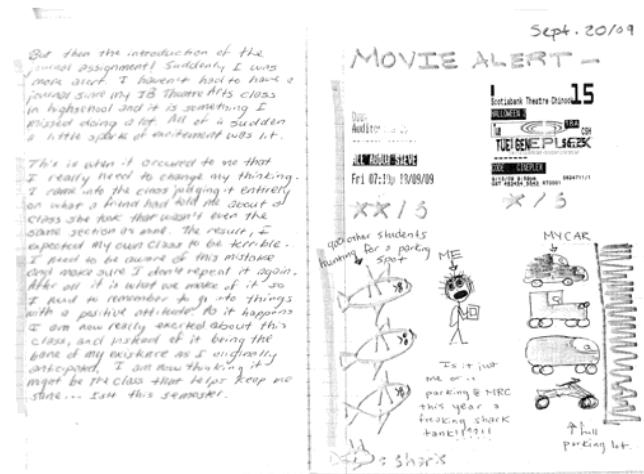 But then the introduction of the
journal assignment! Suddenly I was
more alert. I haven't had to have a
journal since my IB Theatre Arts class
in highschool and it is something I
missed doing a lot. All of a sudden
a little spark of excitement was lit.
This is when it occured to me that
I really need to change my thinking.
I came into the class judging it entirely
on what a friend had told me about a
class she took that wasn't even the
same section as mine. The result, I
expected my own class to be terrible.
I need to be aware of this mistake
and make sure I don't repeat it again.
After all it is what we make of it so
I need to remember to go into things
with a positive attitude. As it happens
I am now really excited about this
class, and instead of it being the
bane of my existence as I originally
anticipated, I am now thinking it
might be the class that helps keep me
sane... this semester.
Sept. 20/09
MOVIE ALERT -
ALL ABOUT STEVE
Fri 07:10p 18/09/09
XX/5
Scotiabank Theatre Chinook
15
HALLOWEEN 2
CODE CINEPLEX
X/5
other students
hunting for a parking
spot
ME
MY CAR
Is it just
me or..
parking @ MRC
this year a
freaking shark
tank!!!!!!
full
parking lot.
= shark